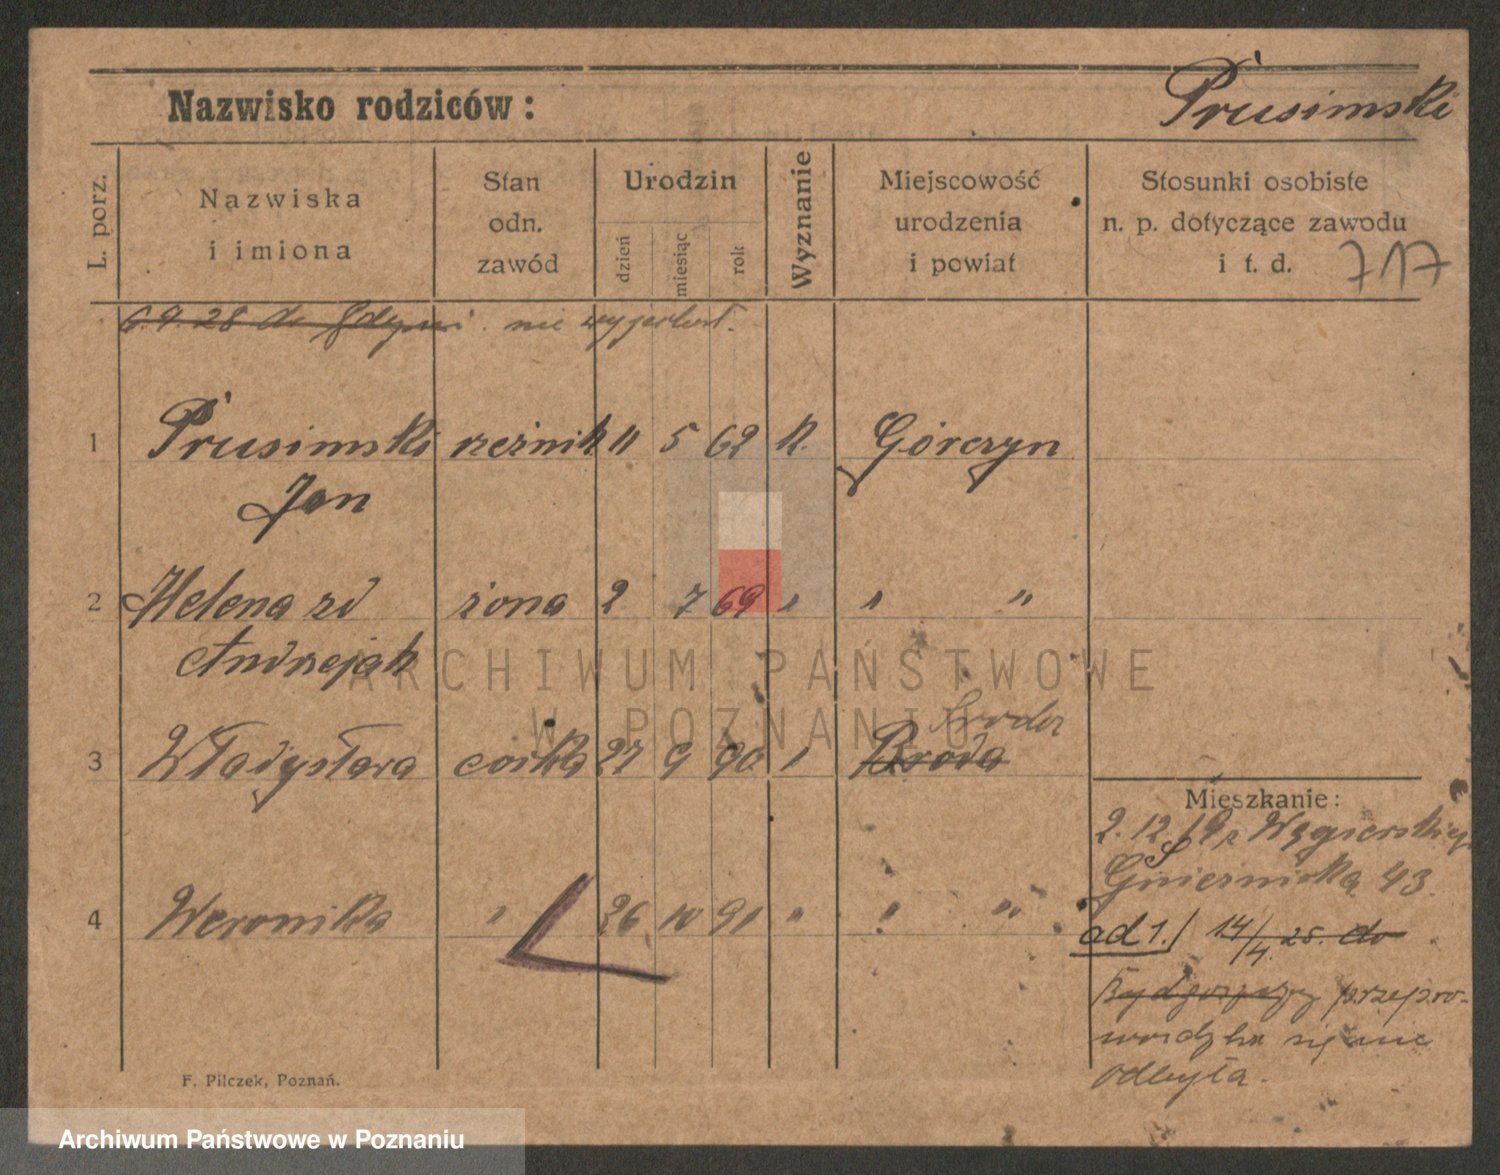 Nazwisko rodziców:
Prusimski
L. porz.
Nazwiska
i imiona
Stan
odn.
zawód
Urodzin
dzień
miesiąc
rok
Wyznanie
Miejscowość
urodzenia
i powiat
Stosunki osobiste
n. p. dotyczące zawodu
i t. d.
717
6.9.28 do Gdyni. nie wyjechał.
1 Prusimski rzeźnik 11 5 62 K. Górczyn
Jan
2 Helena zd żona 2 7 69 " " "
Andrzejak
3 Władysława córka 27 9 90 " Broda
4 Weronika " 26 10 91 " " "
Mieszkanie:
2.12.19 z Węgierskiej
43.
ad 1./ 14/4. 25. do
Bydgoszczy przepro-
wadzka się nie
odbyła.
F. Pilczek, Poznań.
ARCHIWUM PAŃSTWOWE
W POZNANIU
Archiwum Państwowe w Poznaniu